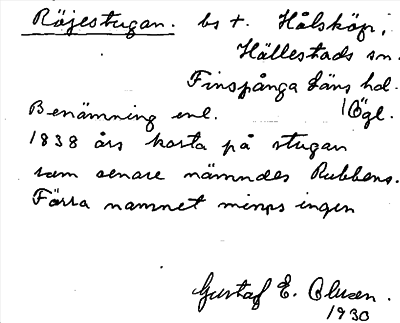 Röjestugan. bs t. Hålsköp,
Hällestads sn.
Finspånga läns hd.
Ögl.
Benämning enl.
1838 års karta på stugan
som senare nämndes Rubbens.
Förra namnet minns ingen
Gustaf E. Olsson.
1930